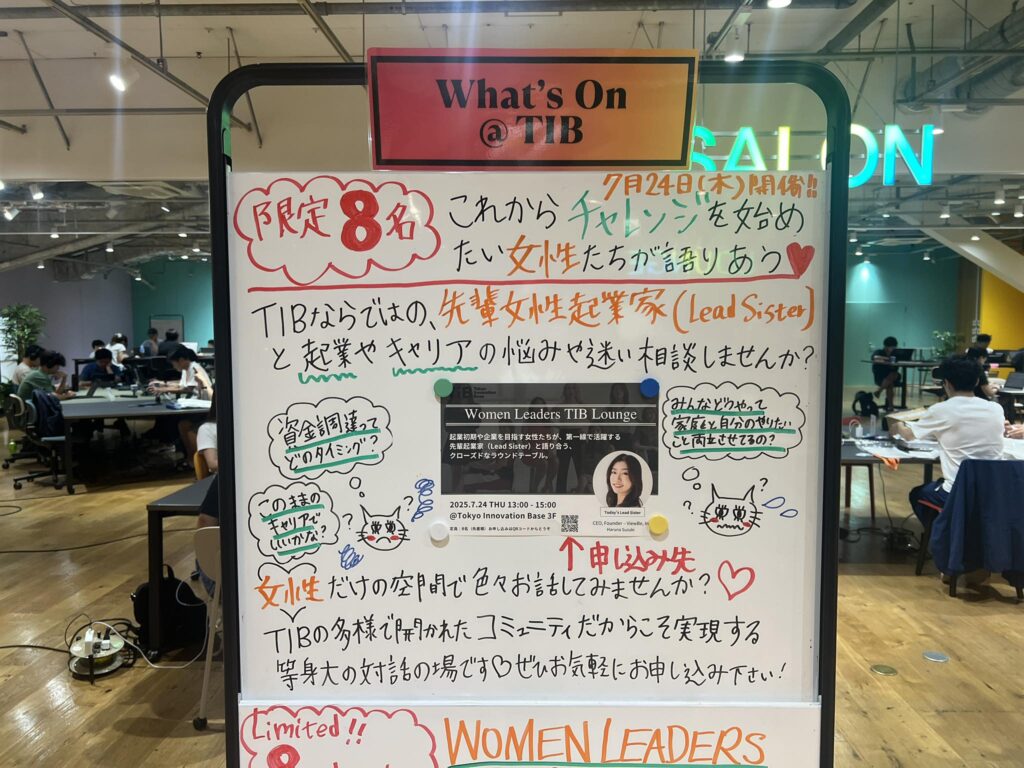 What's On
@ TIB
SALON
7月24日(木)開催!!
限定8名
これからチャレンジを始め
たい女性たちが語りあう
TIBならではの、先輩女性起業家(Lead Sister)
と起業やキャリアの悩みや迷い相談しませんか?
資金調達って
どのタイミング?
このままの
キャリアで
いいかな?
Tokyo
Innovation
Base
Women Leaders TIB Lounge
起業初期や企業を目指す女性たちが、第一線で活躍する
先輩起業家（Lead Sister）と語り合う、
クローズドなラウンドテーブル。
2025.7.24 THU 13:00 - 15:00
@Tokyo Innovation Base 3F
定員：8名（先着順）お申し込みはQRコードからどうぞ
Today's Lead Sister
CEO, Founder - ViewBe, In
Haruna Suzuki
みんなどうやって
家庭と自分のやりたい
こと両立させてるの?
? ? ? ?
↑申し込み先
女性だけの空間で色々お話してみませんか?
TIBの多様で開かれたコミュニティだからこそ実現する
等身大の対話の場です♡ぜひお気軽にお申し込み下さい!
Limited!!
8
WOMEN LEADERS